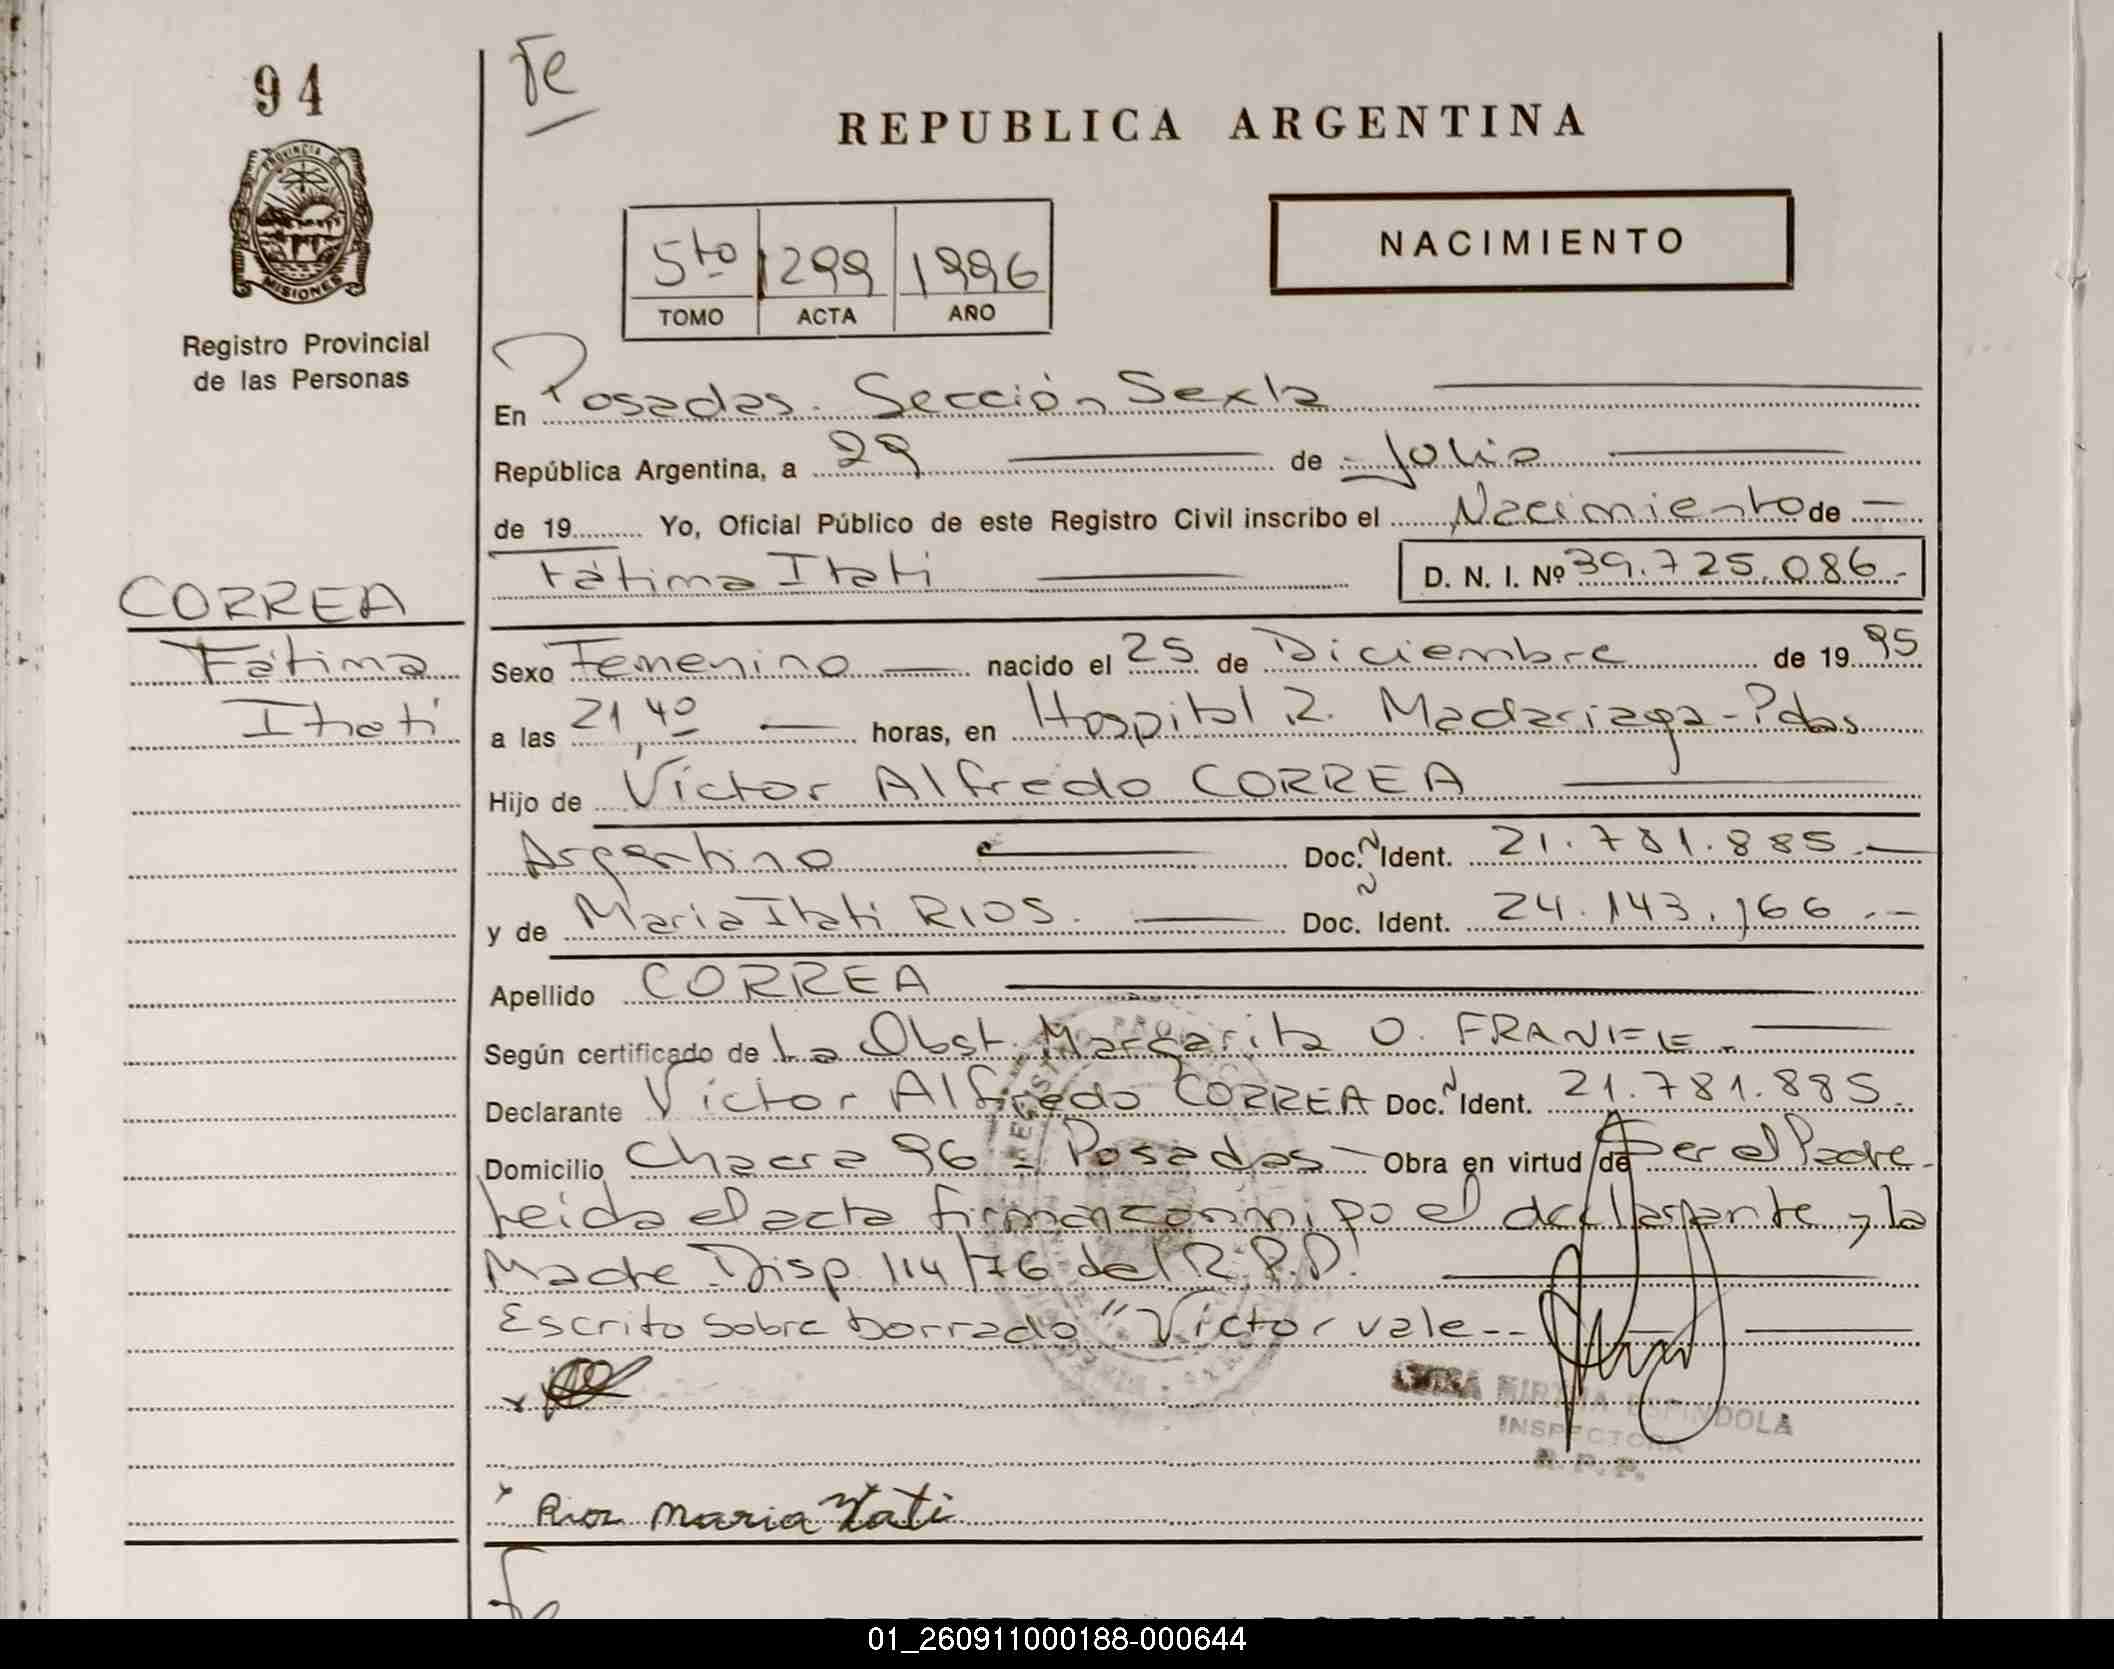 94
Fe
REPUBLICA ARGENTINA
PROVINCIA DE
MISIONES
Registro Provincial
de las Personas
5to 1299 1996
TOMO ACTA AÑO
NACIMIENTO
En Posadas. Sección Sexta
República Argentina, a 29 de Julio
de 19 Yo, Oficial Público de este Registro Civil inscribo el Nacimiento de
Fátima Itati D. N. I. Nº 39.725.086.-
CORREA
Fátima
Itatí
Sexo Femenino nacido el 25 de Diciembre de 19 95
a las 21,40 horas, en Hospital R. Madariaga-Pdas
Hijo de Víctor Alfredo CORREA
Argentino Doc. Ident. 21.781.885.-
y de Maria Itati RIOS. Doc. Ident. 24.143.166.-
Apellido CORREA
Según certificado de La Obst. Margarita O.
Declarante Victor Alfredo CORREA Doc. Ident. 21.781.885.
Domicilio Chacra 96 - Posadas - Obra en virtud de Ser el Padre-
Leida el acta firman conmigo el declarante y la
Madre Disp. 114/76 del R.P.P.
Escrito sobre borrado "Victor vale--
MIRTHA ESPINDOLA
INSPECTORA
R. P. P.
Rios Maria Itati
Fe
REPUBLICA ARGENTINA
01_260911000188-000644